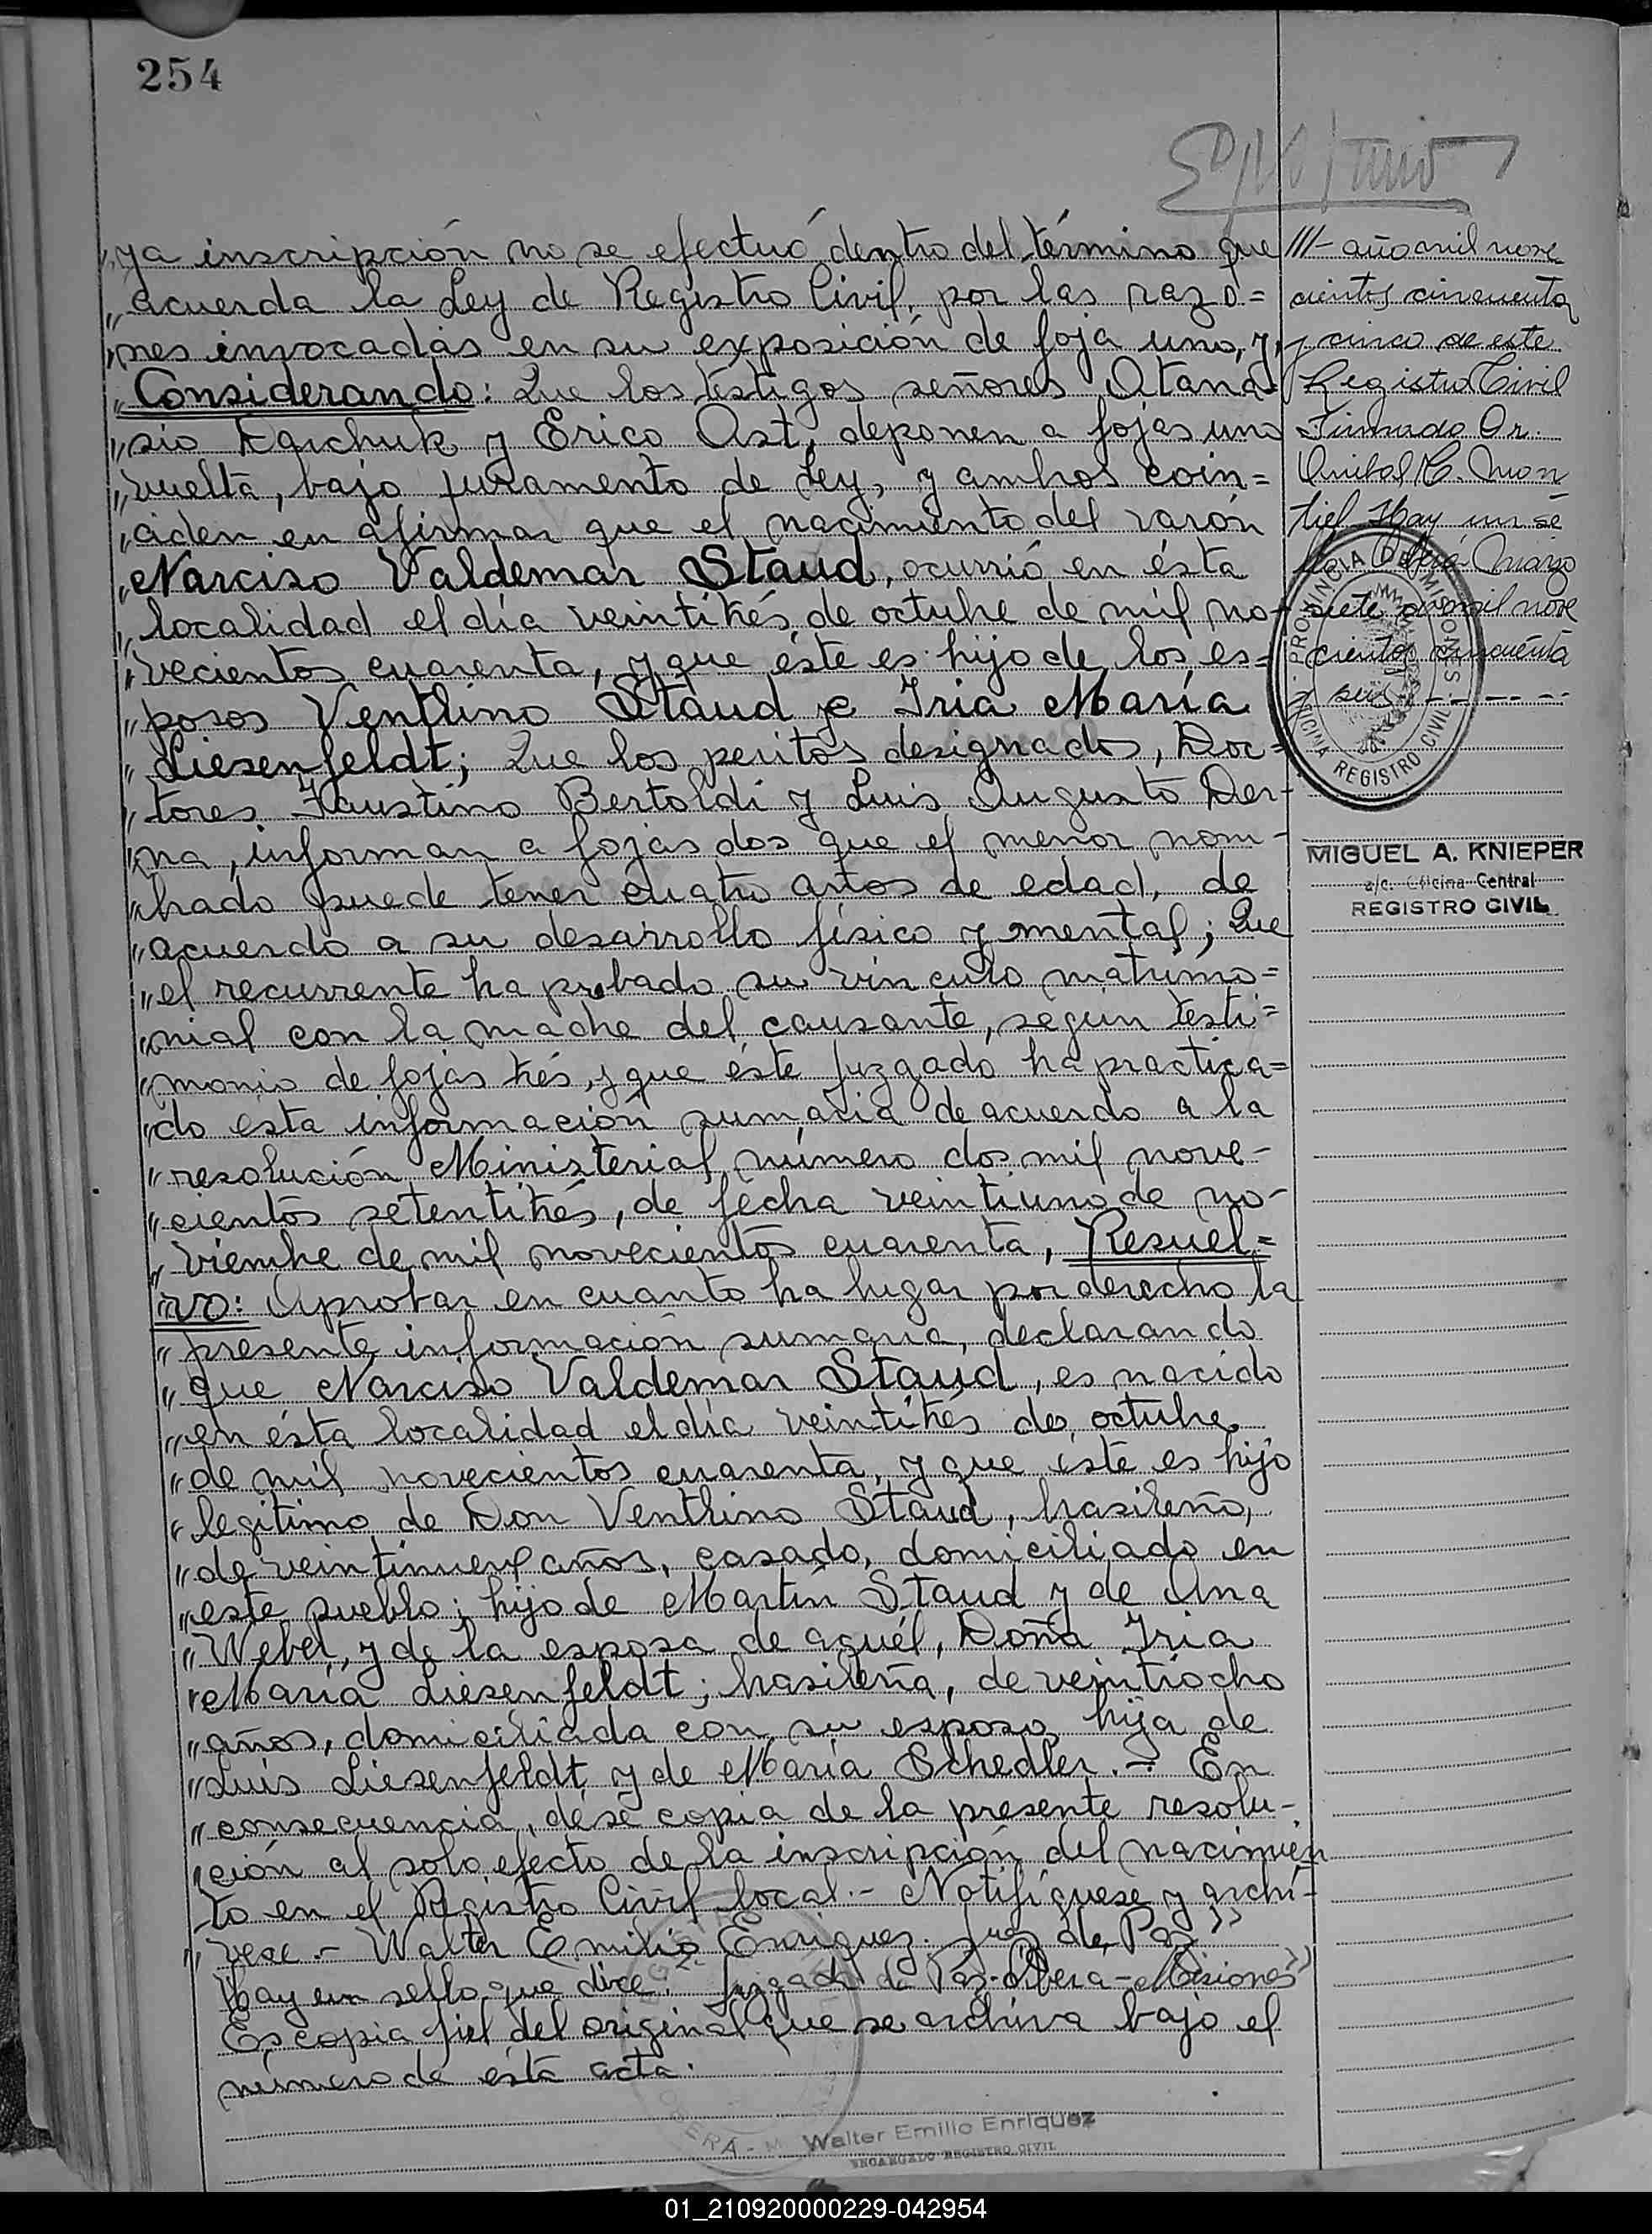 254
„ ya inscripción no se efectuó dentro del término que
„ acuerda la Ley de Registro Civil, por las razo=
„ nes invocadas en su exposición de foja uno, y,
„ Considerando: Que los testigos señores Atana=
„ sio Darchuk y Erico Ast, deponen a fojas una
„ vuelta, bajo juramento de Ley, y ambos coin=
„ ciden en afirmar que el nacimiento del varón
„ Narciso Valdemar Staud, ocurrió en ésta
„ localidad el día veintitrés de octubre de mil no-
„ vecientos cuarenta, y que éste es hijo de los es=
„ posos Venthino Staud y Iria María
„ Liesenfeldt; Que los peritos designados, Doc=
„ tores Faustino Bertoldi y Luis Augusto Der-
„ na, informan a fojas dos que el menor nom-
„ brado puede tener cuatro años de edad, de
„ acuerdo a su desarrollo físico y mental; Que
„ el recurrente ha probado su vínculo matrimo=
„ nial con la madre del causante, según testi=
„ monio de fojas trés, y que éste Juzgado ha practica=
„ do ésta información sumaria de acuerdo a la
„ resolución Ministerial número dos mil nove-
„ cientos setentitrés, de fecha veintiuno de no-
„ viembre de mil novecientos cuarenta, Resuel=
„ vo: Aprobar en cuanto ha lugar por derecho la
„ presente información sumaria, declarando
„ que Narciso Valdemar Staud, es nacido
„ en ésta localidad el día veintitrés de octubre
„ de mil novecientos cuarenta, y que éste es hijo
„ legítimo de Don Venthino Staud, brasileño,
„ de veintinueve años, casado, domiciliado en
„ este pueblo; hijo de Martín Staud y de Ana
„ Weber, y de la esposa de aquél, Doña Iria
„ María Liesenfeldt; brasileña, de veintiocho
„ años, domiciliada con su esposo, hija de
„ Luis Liesenfeldt y de María Schedler.- En
„ consecuencia, dése copia de la presente resolu-
„ ción al solo efecto de la inscripción del nacimien
to en el Registro Civil local.- Notifíquese y archí-
„ vese.- Walter Emilio Enriquez. Juez de Paz”
Hay un sello que dice: Juzgado de Paz-Obera-Misiones”
Es copia fiel del original que se archiva bajo el
número de ésta acta.
Walter Emilio Enriquez
ENCARGADO REGISTRO CIVIL
///- año mil nove
cientos cincuenta
y cinco de este
Registro Civil
Firmado Or.
Anibal C. Mon
tiel Hay un se
llo Oberá Marzo
siete de mil nove
cientos cincuenta
y seis - - - - -
PROVINCIA DE MISIONES
OFICINA REGISTRO CIVIL
MIGUEL A. KNIEPER
a/c. Oficina Central
REGISTRO CIVIL
01_210920000229-042954